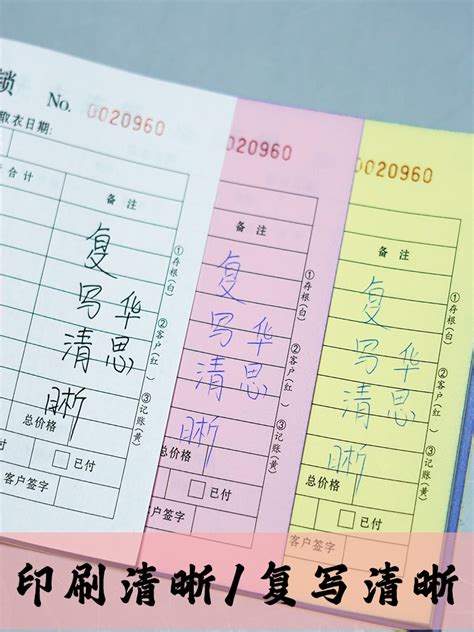 锁
No. 0020960
取衣日期:
合计 备注
复
写 华
清 思
晰
①存根(白)
②客户(红)
③记账(黄)
总价格
已付
客户签字
0020960
备注
复
写 华
清 思
晰
①存根(白)
②客户(红)
③记账(黄)
总价格
已付
客户签字
0020960
备注
复
写 华
清 思
晰
①存根(白)
②客户(红)
③记账(黄)
总价格
已付
客户签字
印刷清晰/复写清晰